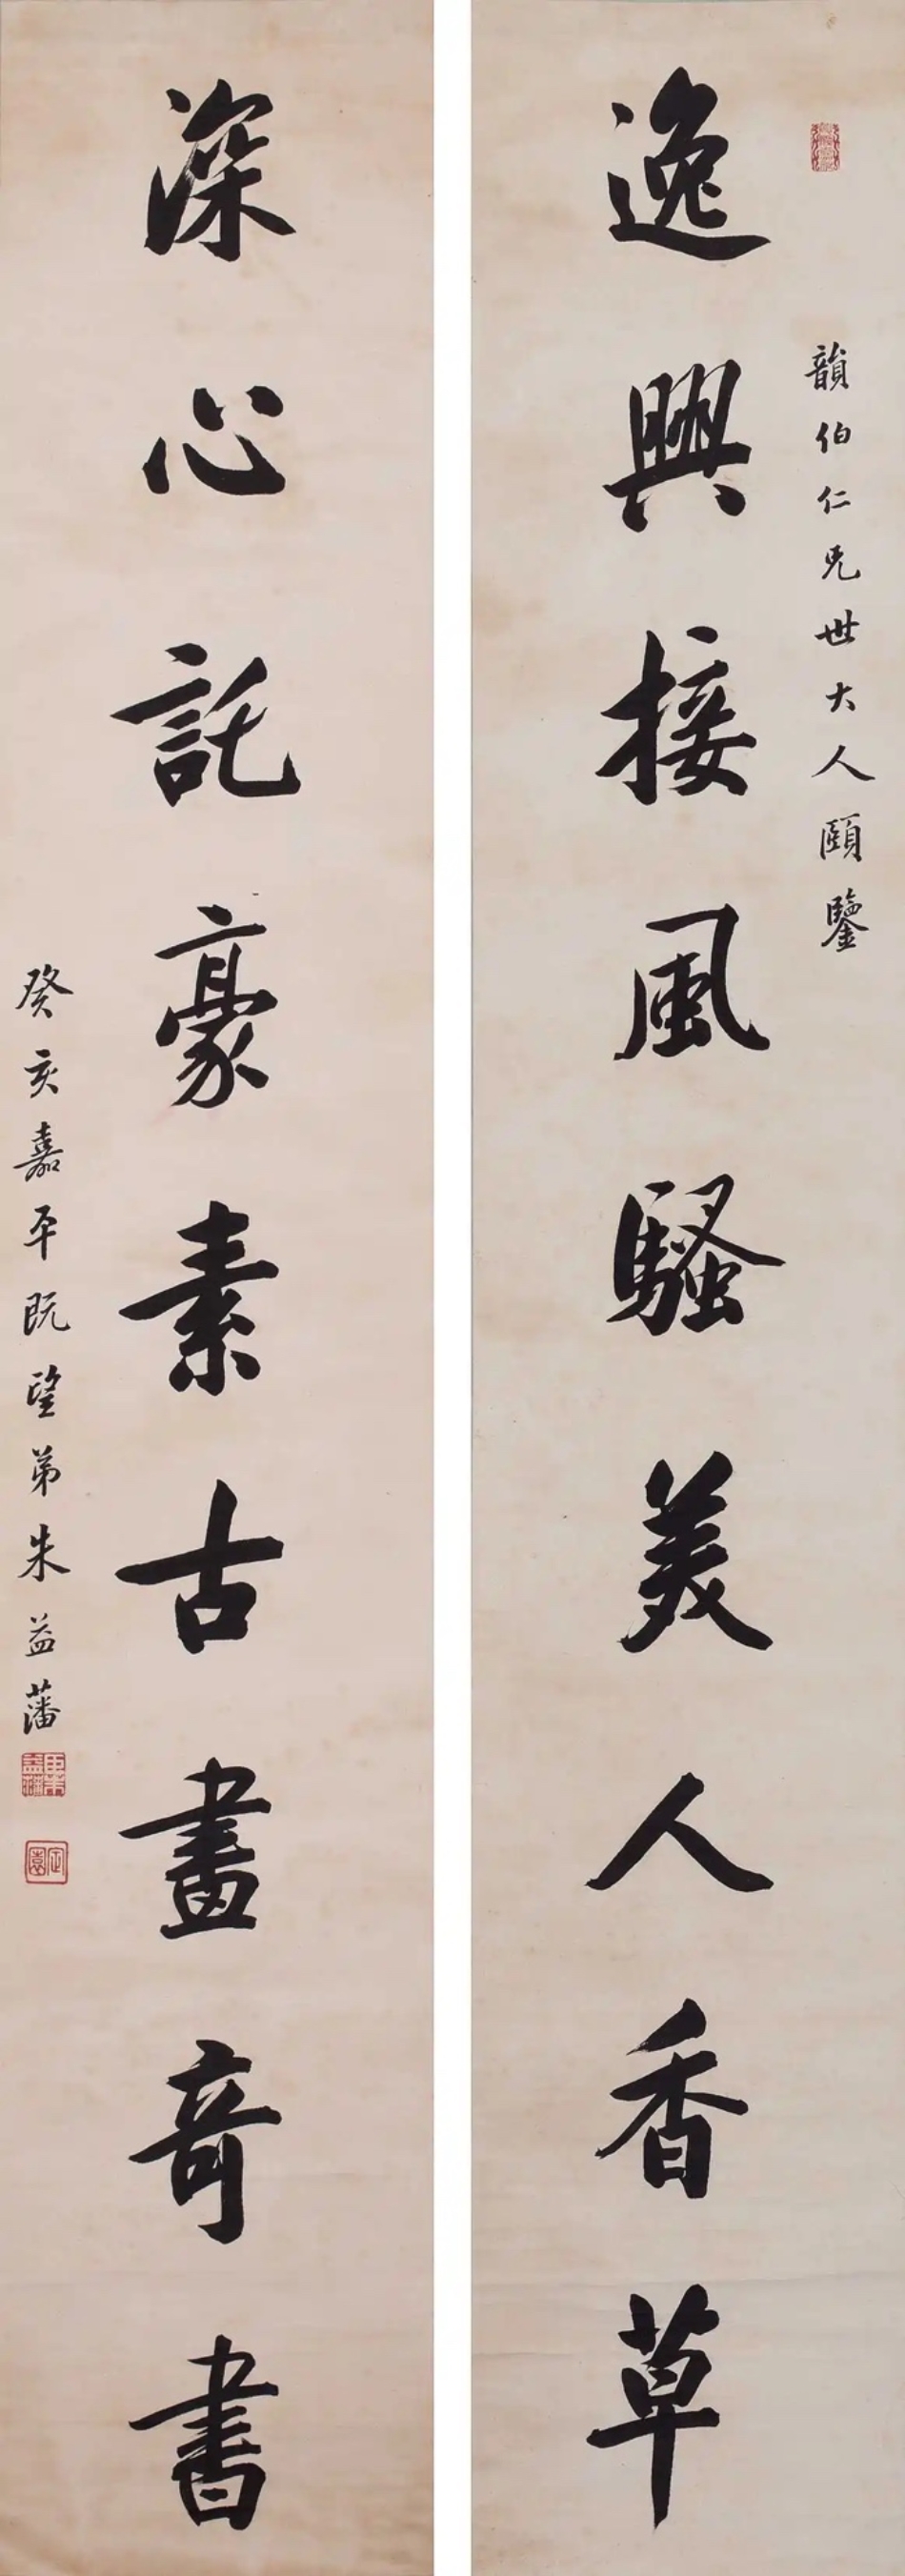 韻伯仁兄世大人頤鑒
逸興接風騷美人香草
深心託豪素古畫奇書
癸亥嘉平既望弟朱益藩